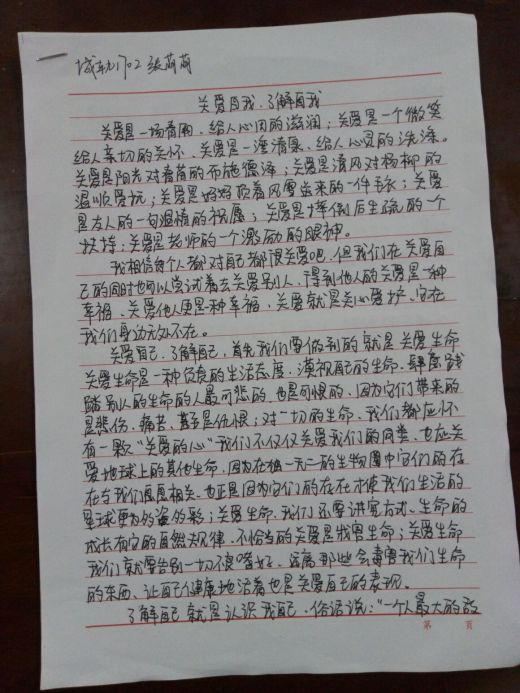 城轨1702 张萌萌
关爱自我、了解自我
关爱是一场春雨、给人心田的滋润；关爱是一个微笑
给人亲切的关怀、关爱是一湮清泉、给人心灵的洗涤。
关爱是阳光对蔷薇的布施德泽；关爱是清风对杨柳的
温顺爱抚；关爱是妈妈顶着风雪送来的一件毛衣；关爱
是友人的一句温情的祝愿；关爱是摔倒后生疏的一个
扶持；关爱是老师的一个激励的眼神。
我相信每个人都对自己都很关爱吧，但我们在关爱自
己的同时也可以尝试着去关爱别人，得到他人的关爱是一种
幸福、关爱他人更是种幸福，关爱就是关心爱护，它在
我们身边无处不在。
关爱自己、了解自己，首先我们要做到的就是关爱生命
关爱生命是一种负责的生活态度，漠视自己的生命，肆意践
踏别人的生命的人最可悲的，也是可恨的，因为它们带来的
是悲伤，痛苦，甚至是仇恨；对一切的生命，我们都应怀
有一颗“关爱的心”我们不仅仅关爱我们的同类，也应关
爱地球上的其他生命，因为在独一无二的生物圈中它们的存
在与我们息息相关，也正是因为它们的存在才使我们生活的
星球更为多姿多彩；关爱生命，我们还要讲究方式、生命的
成长有它的自然规律，不恰当的关爱是戕害生命；关爱生命
我们就要告别一切不良嗜好、远离那些会毒害我们生命
的东西、让自己健康地活着也是关爱自己的表现。
了解自己就是认识我自己，俗话说：“一个人最大的敌
第 页